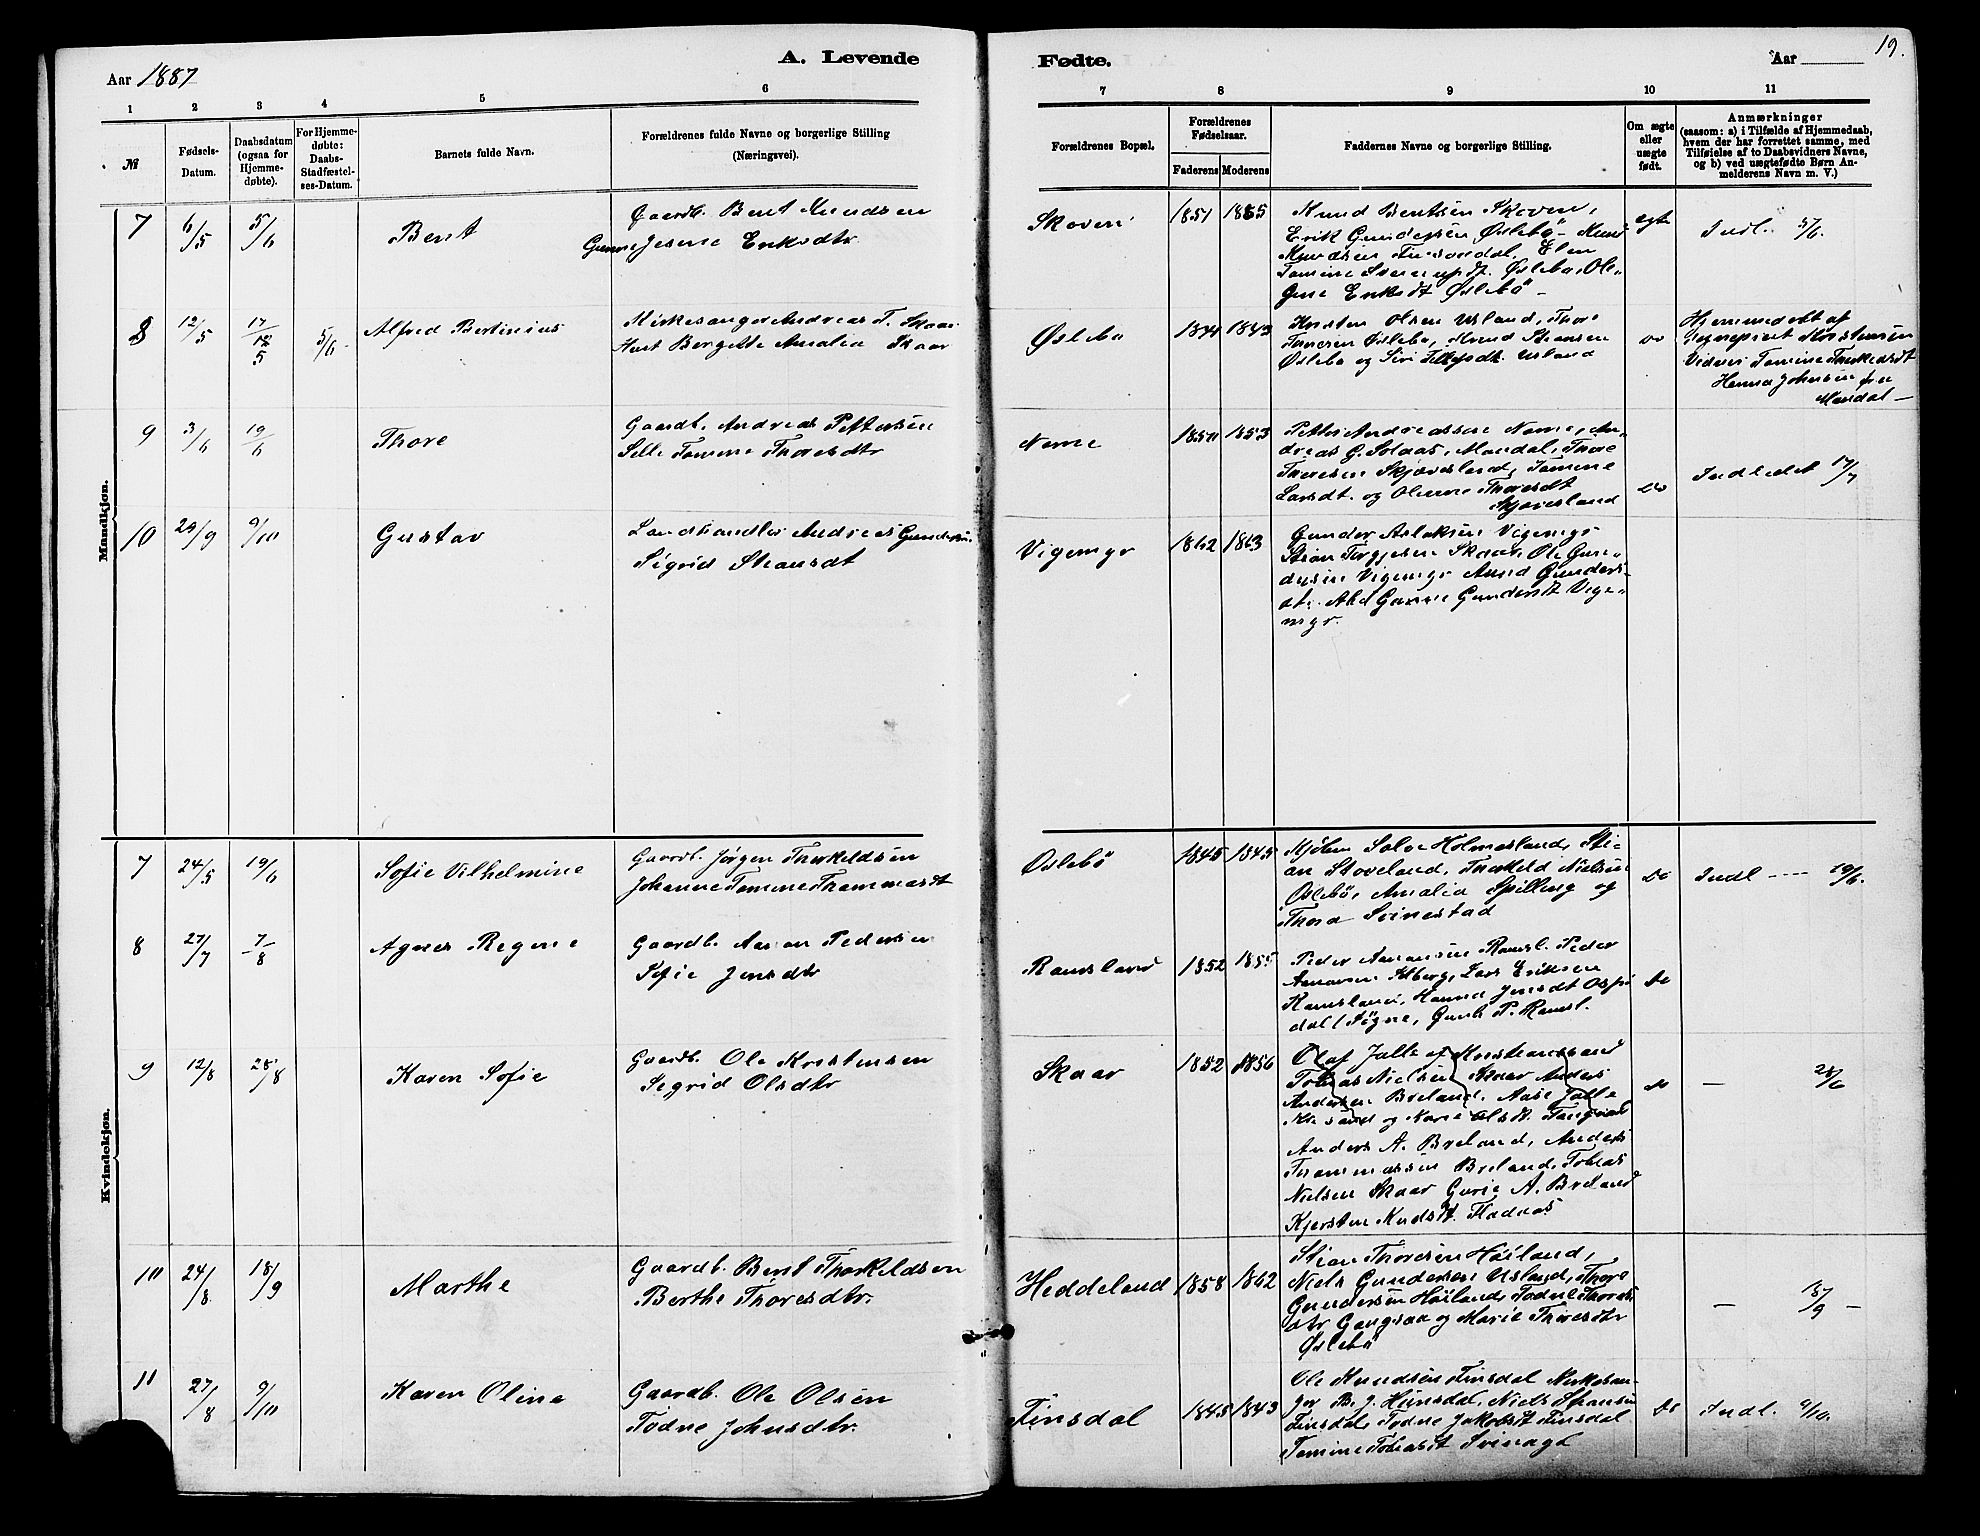 Aar 1887
A. Levende
Fødte.
Aar
19.
1 2 3 4 5 6 7 8 9 10 11
№
Fødsels-
Datum.
Daabsdatum
(ogsaa for
Hjemme-
døbte).
For Hjemme-
døbte:
Daabs-
Stadfæstel-
ses-Datum.
Barnets fulde Navn.
Forældrenes fulde Navne og borgerlige Stilling
(Næringsvei).
Forældrenes Bopæl.
Forældrenes
Fødselsaar.
Faderens Moderens
Faddernes Navne og borgerlige Stilling.
Om ægte
eller
uægte
født.
Anmærkninger
(saasom: a) i Tilfælde af Hjemmedaab,
hvem der har forrettet samme, med
Tilføielse af to Daabsvidners Navne,
og b) ved uægtefødte Børn An-
melderens Navn m. V.)
Mandkjøn.
7 6/5 5/6 Bent
Gaardb. Bent Knudsen
Gunne Jesine Eriksdtr
Skoven 1851
Knud Bentsen Skoven,
Erik Gundersen Øslebö - Knud
Øslebo, Ole
Gine Eriksdt Øslebö -
egte Indl. 5/6.
8 12/5 5/6 Alfred Bertinius
Kirkesanger Andreas T. Skaar
Hust Bergitte Amalia Skaar
Øslebo 1843
Kristen Olsen Usland, Thore
Thoresen Øslebo, Knud Stiansen
Øslebo og Siri Usland
do
Hjemmedöbt af
Vidner Tomine
Hanna Johnsen
Mandal -
9 3/6 19/6 Thore
Gaardb. Andreas Pettersen
Sille Tomine Thoresdtr
Nome 1853
Petter Andreassen Nome, An-
dreas G. Solaas, Mandal, Thore
Thoresen Skjævesland, Tomine
Larsdt. og Olene Thoresdt
Skjævesland
do Indledet 17/7
10 29/9 9/10 Gustav
Landhandler Andreas Gundersen
Sigrid Stiansdt
Vigemyr 1862 1863
Gunder Aslaksen Vigemyr
Stian Tergjesen Skaar, Ole Gun-
dersen Vigemyr Gunders-
dt. Gunders dt Vige-
myr.
Kvindekjøn.
7 24/5 19/6 Sofie Vilhelmine
Gaardb. Jörgen Thorkeldsen
Johanne Tomine Thommasdt
Oslebö 1845 1845
Holmesland, Sti-
an Stoveland, Thorkeld Nielsen
Oslebö, Amalia Spilling og
Thora Svinestad
do Indl ---- 19/6.
8 27/7 7/8 Agnes Regine
Gaardb. Aanon Pedersen
Sofie Jensdtr
Ramsland 1852 1855
Peder Aanonsen Ramsl. Peder
Lars Eriksen
Ramsland, Hanna Jensdt
dal i Søgne, Gunh P. Ramsl.
do
9 12/8 28/8 Karen Sofie
Gaardb. Ole Kristensen
Segrid Olsdtr
Skaar 1852 1856
Olaf Jalle af Kristianssand
Tobias Nielsen Skaar Anders
Andersen Breland. Aase Jalle
og Karie Olsdt.
Anders A. Breland, Anders
Thommassen Breland, Tobias
Nielsen Skaar Gurie A. Breland
Kjersten Knudsdt.
do - 28/6
10 24/8 18/9 Marthe
Gaardb. Bent Thorkildsen
Berthe Thoresdtr.
Heddeland 1858 1862
Stian Thoresen Höiland,
Niels Gundersen Usland, Thore
Gundersen Höiland, Todne Thores-
dtr og Marie Thoresdtr
Øslebö
- 18/9 -
11 27/8 9/10 Karen Oline
Gaardb. Ole Olsen
Todne Johnsdtr.
Finsdal 1845 1843
Ole Knudsen Finsdal Kirkesan-
ger B. J. Hunsdal, Niels Stiansen
Finsdal, Todne Jakobsdt Finsdal
Tomine Tobiasdt
do Indl. 9/10.